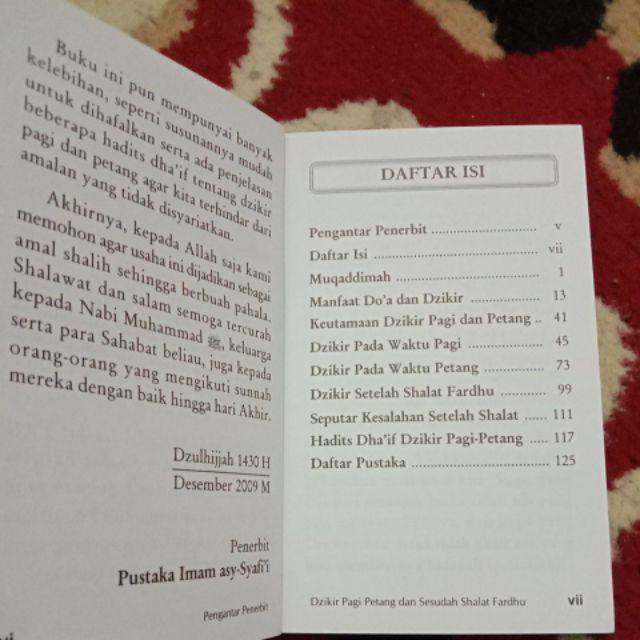 Buku ini pun mempunyai banyak
kelebihan, seperti susunannya mudah
untuk dihafalkan serta ada penjelasan
beberapa hadits dha'if tentang dzikir
pagi dan petang agar kita terhindar dari
amalan yang tidak disyariatkan.
Akhirnya, kepada Allah saja kami
memohon agar usaha ini dijadikan sebagai
amal shalih sehingga berbuah pahala.
Shalawat dan salam semoga tercurah
kepada Nabi Muhammad ﷺ, keluarga
serta para Sahabat beliau, juga kepada
orang-orang yang mengikuti sunnah
mereka dengan baik hingga hari Akhir.
Dzulhijjah 1430 H
Desember 2009 M
Penerbit
Pustaka Imam asy-Syafi'i
Pengantar Penerbit
DAFTAR ISI
Pengantar Penerbit ........................... v
Daftar Isi ......................................... vii
Muqaddimah .................................... 1
Manfaat Do'a dan Dzikir ................. 13
Keutamaan Dzikir Pagi dan Petang .. 41
Dzikir Pada Waktu Pagi .................. 45
Dzikir Pada Waktu Petang ............... 73
Dzikir Setelah Shalat Fardhu ............ 99
Seputar Kesalahan Setelah Shalat ...... 111
Hadits Dha'if Dzikir Pagi-Petang ..... 117
Daftar Pustaka .................................. 125
Dzikir Pagi Petang dan Sesudah Shalat Fardhu vii